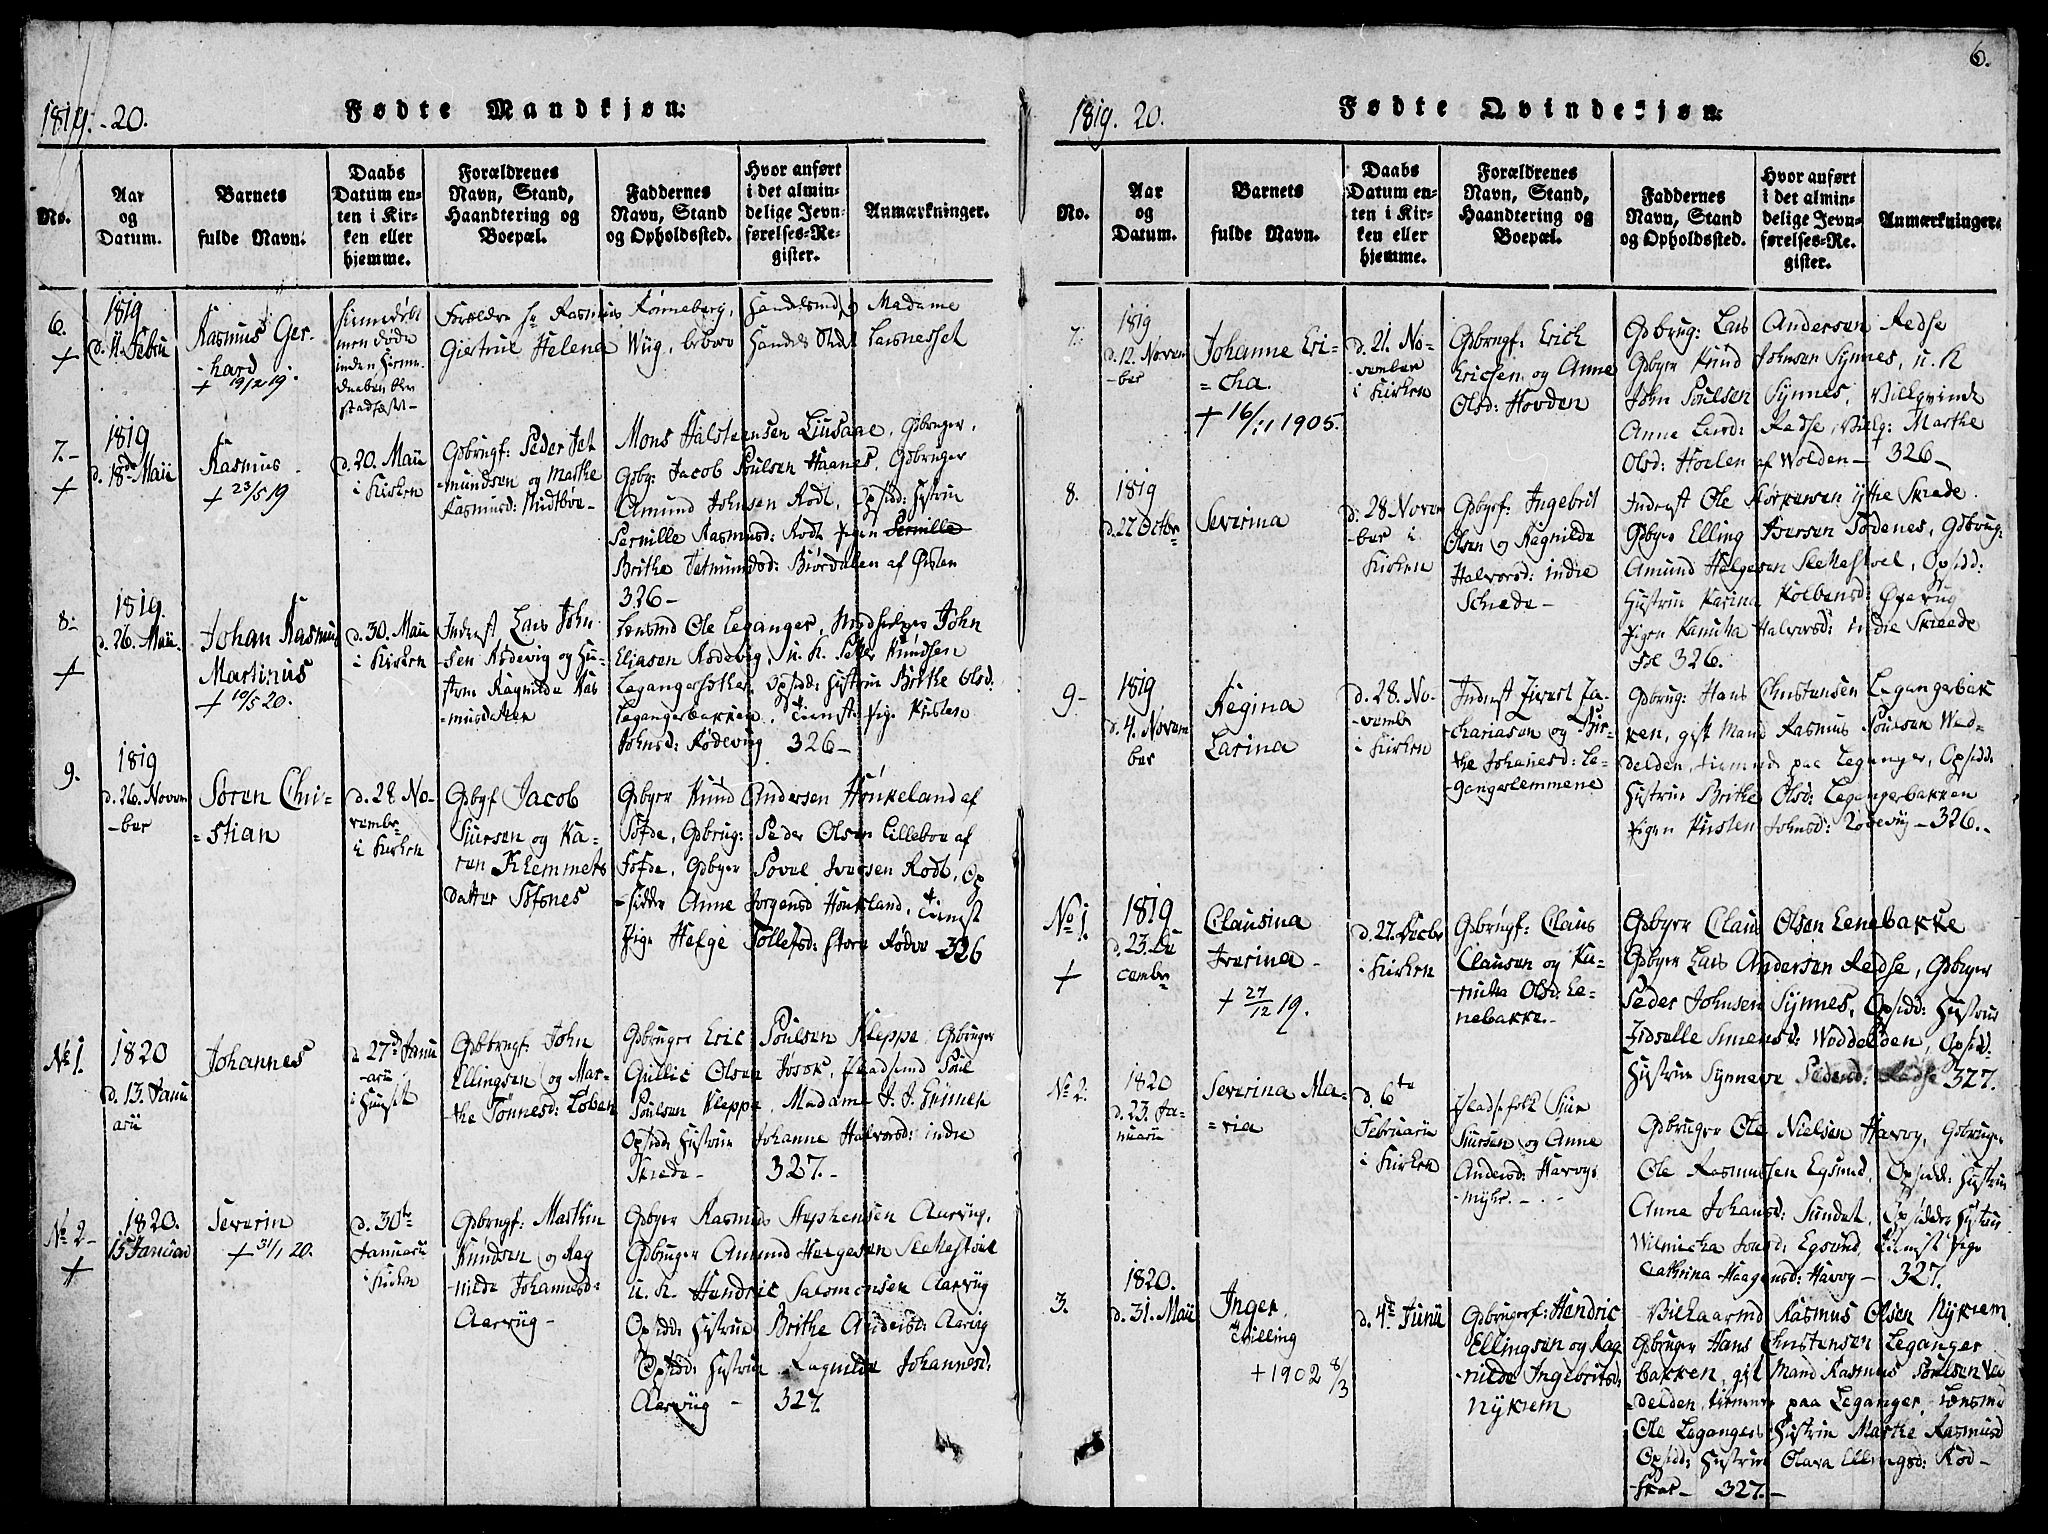 1819.-20.
Fødte Mandkjøn.
No.
Aar
og
Datum.
Barnets
fulde Navn.
Daabs
Datum en-
ten i Kir-
ken eller
hjemme.
Forældrenes
Navn, Stand,
Haandtering og
Boepæl.
Faddernes
Navn, Stand
og Opholdssted.
Hvor anført
i det almin-
delige Jevn-
førelses-Re-
gister.
Anmærkninger.
6.
+
1819
d. 11. Febru
Rasmus Ger-
-hard
+ 19/2 19.
hiemmedøbt
men døde
inden
stadfæstet-
Forældre Hr Rasmus Rønneberg, Handelsmd, og Madame
Giertrue Helena Wiig, beboer Handels Stædet Larsnesset
7.-
+
1819
d. 18de Maii
Rasmus
+ 23/5 19
d. 20. Maii
i Kirken
Gdbrugf: Peder Jet
-mundsen og Marthe
Rasmusd: Midtbøe-
Mons Halsteensen Liusaae, Gdbruger,
Gdby: Jacob Poulsen Haanes, Gdbruger
Amund Johnsen Rodt, Opsidd: Hystrue
Pernille Rasmusd: Rodt Pigen Pernille
Brithe Jetmundsd: Biørdalen af Ørsten
326-
8-
+
1819.
d. 26. Maii
Johan Rasmus
Martinus
+ 10/5 20.
d. 30. Maii
i Kirken
Inderst Lars John
sen Rødevig og Hu-
strue Ragnilda Ras
-musdatter
Lensmd Ole Leganger, John
Eliasen Rødevig, u. K. Peder Knudsen
Opsidd: Hystrue Brithe Olsd:
Legangerbakken, Tienst: Pige Kirsten
Johnsd: Rødevig 326-
9.
1819
d. 26. Novem
-ber
Søren Chri-
=stian
d. 28 No-
vembr
i Kirken
Gdbgf Jacob
Siursen og Ka-
ren Klemmets
datter Søfsnes
Gdbger Knud Andersen Hønkeland af
Søfde, Gdbrug: Peder Olsen Lillebøe af
Søfde, Gdbger Povel Iversen Rodt, Op
-sidder Anne Jørgensd Hønkland, Tienst
Pige Helge Tollefsd: store Rødøe 326
No 1.
1820
d. 13. Janu
arii
Johannes
d. 27de Janu
-arii
i Huuset
Gdbrugf: John
Ellingsen og Mar-
the Tønnesd:
Gdbruger Eric Poulsen Kleppe, Gdbruger
Gullic Olsen Jøsok, Pladsmd Poul
Poulsen Kleppe, Madame J. J.
Opsidd: Hystrue Johanne Halvorsd: indre
Skeide- 327.-
No 2-
+
1820.
15 Januari
Severin
+ 31/1 20.
d. 30te
Januarii
i Kirken
Gdbrugf: Marthin
Knudsen og Rag
-nilde Johannesd:
Aarviig-
Gdbger Rasmus Stephensen Aarviig,
Gdbruger Amund Helgesen
u. K. Hendric Salomonsen Aarviig
Opsidd: Hystrue Brithe Andersd: Aarviig
Opsidd: Hystrue Ragnilde Johannesd:
Aarviig - 327.
6.
1819. 20.
Fødte Qvindekjøn.
No.
Aar
og
Datum.
Barnets
fulde Navn.
Daabs
Datum en-
ten i Kir-
ken eller
hjemme.
Forældrenes
Navn, Stand,
Haandtering og
Boepæl.
Faddernes
Navn, Stand
og Opholdssted.
Hvor anført
i det almin-
delige Jevn-
førelses-Re-
gister.
Anmærkninger.
7.
1819
d. 12. Novem
-ber
Johanne Eri-
=cha.
+ 16/11 1905.
d. 21. No-
vember
i Kirken
Gdbrugf: Erich
Ericsen og Anne
Olsd: Hovden
Gdbrug: Lars Andersen Redse
Gdbyer Knud Johnsen Synnes, u. K
John Poulsen Synnes,
Anne Larsd: Redse, Marthe
Olsd: Hoelen af Wolden- 326-
8.
1819
d. 27 Octbr
Severina
d. 28 Novem
-ber i
Kirken
Gdbgf: Ingebrit
Olsen og Ragnilde
Halvorsd: indre
Scheide-
Inderst Ole ytre Skeide
Gdbger Elling Iversen Sødenes, Gdbrug:
Amund Helgesen Opsidd:
Hystrue Karina Kolbensd:
Pigen Karitha Halvorsd: indre Skeide
Fol 326.
9-
1819
d. 4. Novem
ber
Regina
Larina
d. 28. No-
vembr
i Kirken
Inderst Sivert Za-
chariasen og Bir-
the Johanesd: Le-
-gangerlemmene
Gdbrug: Hans Christensen Legangerbak
ken, gift Mand Rasmus Poulsen Wad-
delden, tienende paa Leganger, Opsidd:
Hystrue Brithe Olsd: Legangerbakken
Pigen Kirsten Johnsd: Rødeviig-326.-
No 1.
+
1819
d. 23. De
cembr
Clausina
Iverina-
+ 27/12 19.
d. 27. Decbr
i Kirken
Gdbrugf: Claus
Clausen og Ka-
ritha Olsd: Le-
nebakke.-
Gdbger Claus Olsen Lenebakke
Gdbger Lars Andersen Redse, Gdbger
Peder Johnsen Synnes, Opsidd: Hystrue
Zidselle Simensd: Waddelden, Opsidd.
Hystrue Synneve Pedersd: Redse 327.
No 2.
1820
d. 23. Ja-
nuarii
Severina Ma-
=ria
d. 6te
Februarii
i Kirken
Pladsefolk Siur
Siursen og Anne
Andersd: Havoys
-myhr.-
Gdbruger Ole Nielsen Havoy, Gdbruger
Ole Rasmussen Egsund, Opsidd: Hystrue
Anne Johansd: Sundet, Opsidder Hystrue
Wilmicha Egsund, Tienst Pige
Cathrina Haagensd: Havoy- 327.
3.
1820.
d. 31. Maii
Inger
Tvilling
+ 1902 8/3
d. 4de Junii
Gdbrugerf: Hendric
Ellingsen og Rag
-nilde Ingebritsd:
Nykrem
Vilkaarmd Rasmus Olsen Nykrem,
Gdbruger Hans Christensen Leganger
bakken, gift Mand Rasmus Poulsen Vad
-delden, tienende paa Leganger, Lensmd
Ole Legangers Hystrue Marthe Rasmusd
Opsidd: Hystrue Olava Ellingsd: Rod-
-skar- 327.-